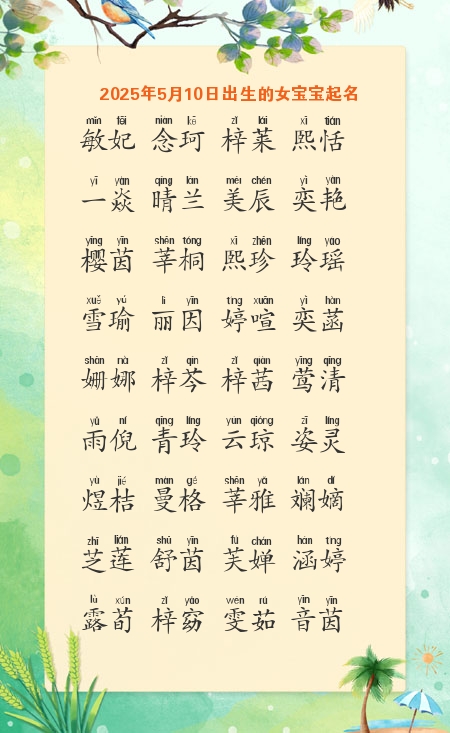 2025年5月10日出生的女宝宝起名
mǐn fēi niàn kē zǐ lái xī tián
敏妃 念珂 梓莱 熙恬
yī yàn qíng lán měi chén yì yàn
一焱 晴兰 美辰 奕艳
yīng yīn shēn tóng xī zhēn líng yáo
樱茵 莘桐 熙珍 玲瑶
xuě yú lì yīn tíng xuān yì hàn
雪瑜 丽因 婷喧 奕菡
shān nà zǐ qín zǐ qiàn yīng qīng
姗娜 梓芩 梓茜 莺清
yǔ ní qīng líng yún qióng zī líng
雨倪 青玲 云琼 姿灵
yù jié màn gé shēn yǎ lán dí
煜桔 曼格 莘雅 斓嫡
zhī lián shū yīn fú chán hán tíng
芝莲 舒茵 芙婵 涵婷
lù xún zǐ yǎo wén rú yīn yīn
露荀 梓窈 雯茹 音茵